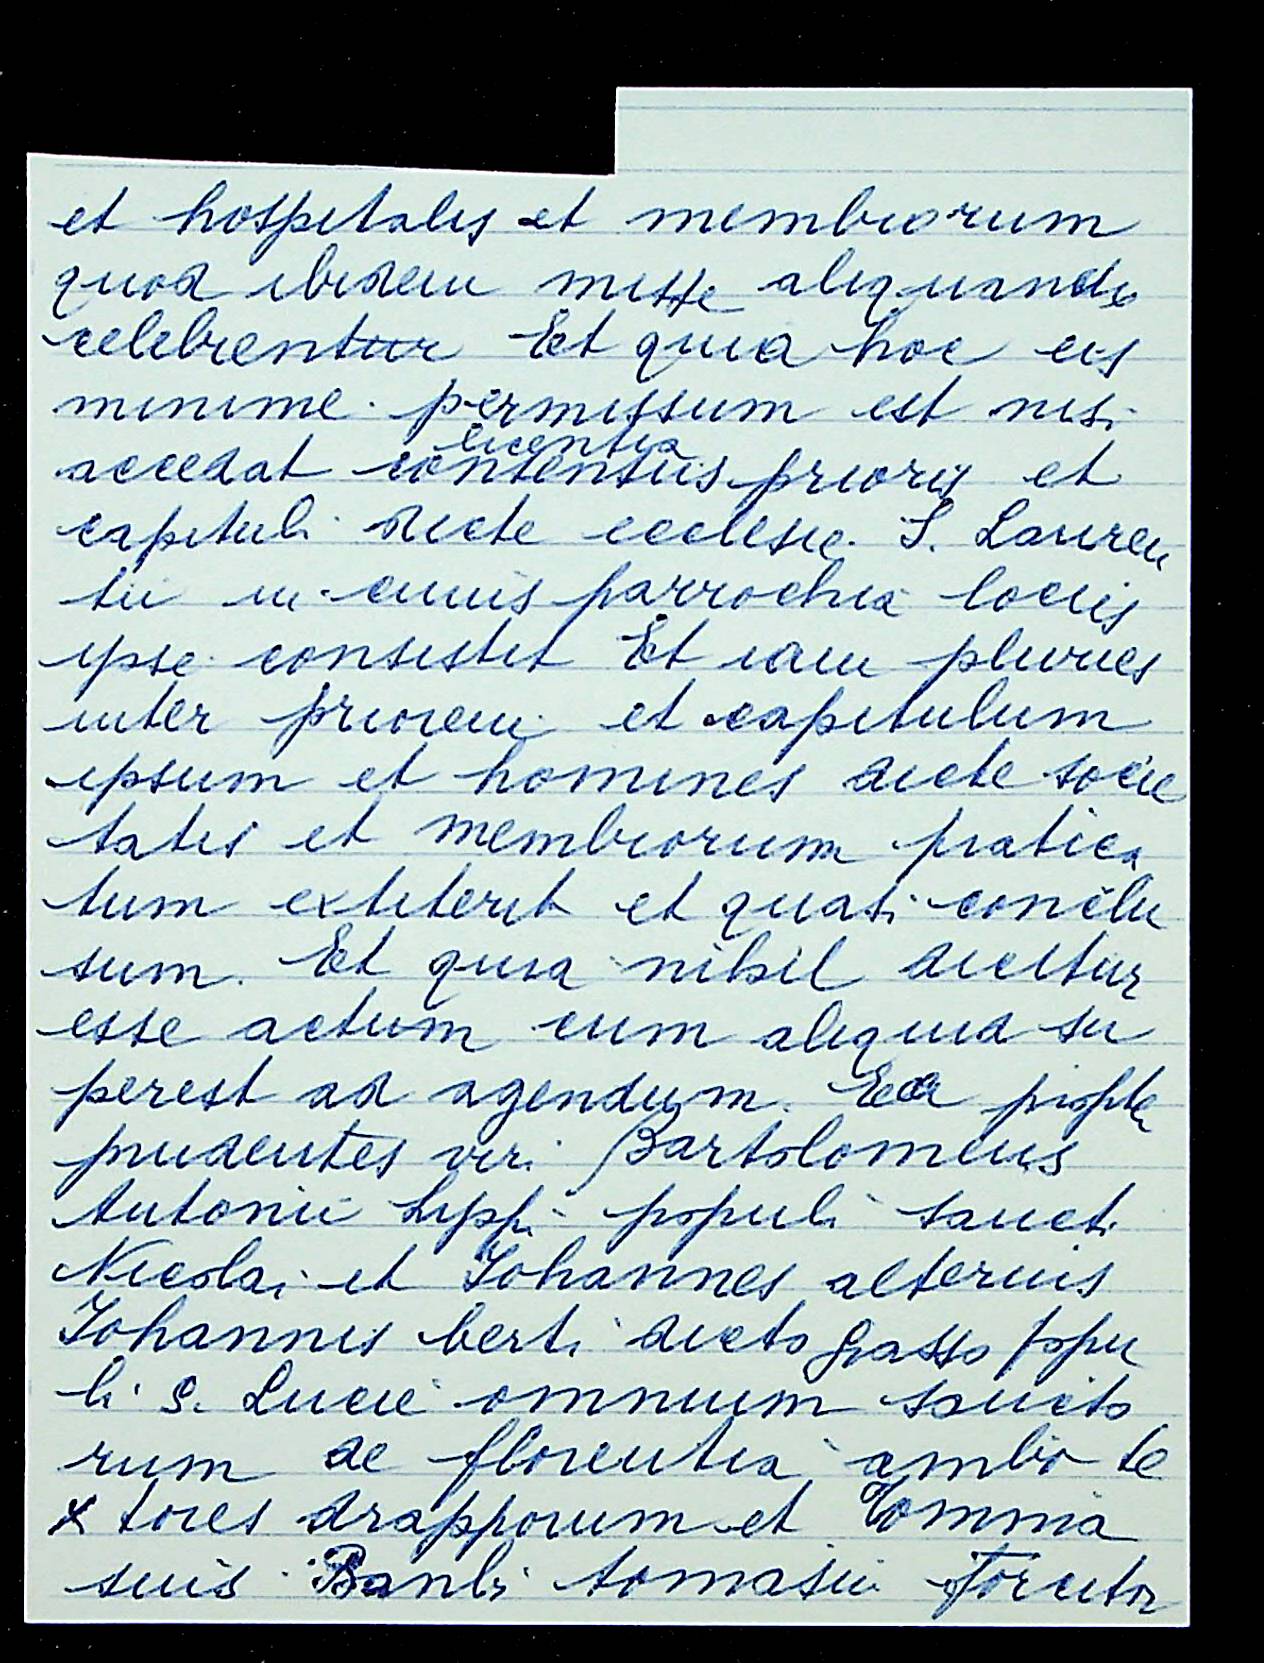 et hospitalis et membrorum
quod ibidem misse aliquando
celebrentur Et quia hoc eis
minime permissum est nisi
licentia
accedat consensus prioris et
capituli dicte ecclesie S. Lauren
tii in cuius parrochia locus
ipse consistit Et iam pluries
inter priorem et capitulum
ipsum et homines dicte socie
tatis et membrorum pratica
tum extiterit et quasi conclu
sum. Et quia nihil dicitur
esse actum cum aliquid su
perest ad agendum. Ea propter
prudentes viri Bartolomeus
Antonii Lippi populi sancti
Nicolai et Johannes alterius
Johannis berti dicto grasso popu
li S. Lucie omnium sancto
rum de florentia ambo te
x tores drapporum et Tomma
suis Banbi tomasii